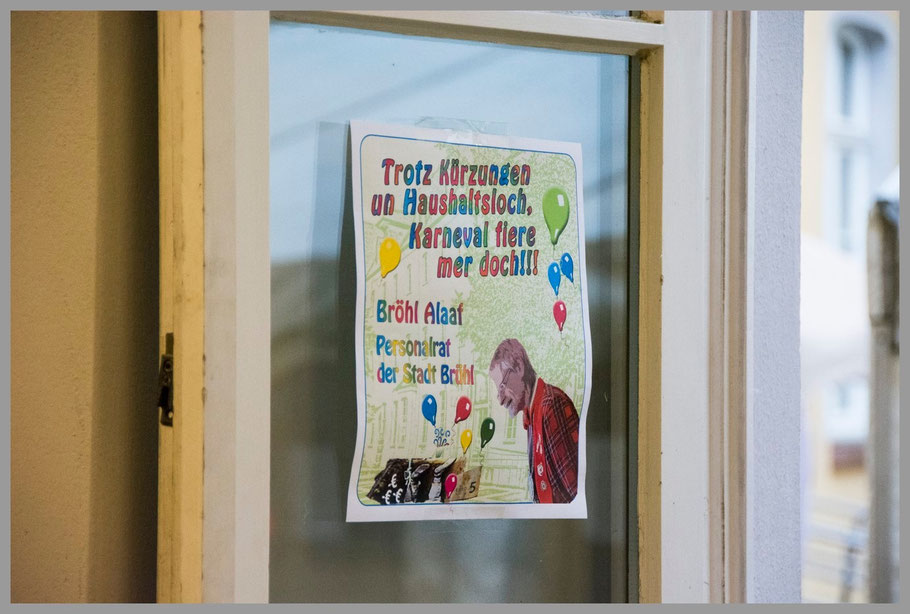 Trotz Kürzungen
un Haushaltsloch,
Karneval fiere
mer doch!!!
Bröhl Alaaf
Personalrat
der Stadt Brühl
€
€ €
€
5